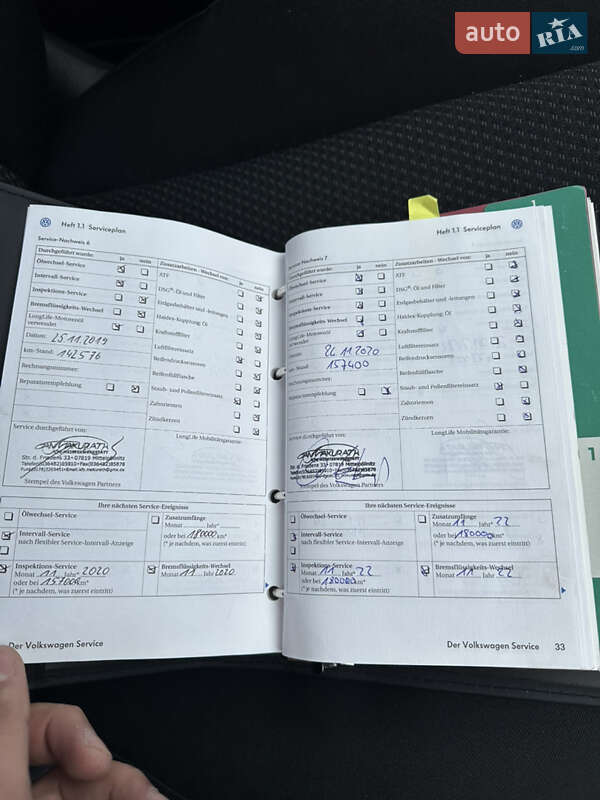 auto RIA
.com
Heft 1.1 Serviceplan
Service-Nachweis 6
Durchgeführt wurde: ja nein Zusatzarbeiten - Wechsel von: ja nein
Ölwechsel-Service ATF
Intervall-Service DSG®-Öl und Filter
Inspektions-Service Erdgasbehälter und -leitungen
Bremsflüssigkeits-Wechsel Haldex-Kupplung: Öl
LongLife-Motorenöl verwendet Kraftstofffilter
Datum: 25.11.2019 Luftfiltereinsatz
km-Stand: 142576 Reifendruckssensoren
Rechnungsnummer: Reifenfüllflasche
Reparaturempfehlung Staub- und Pollenfiltereinsatz
Zahnriemen
Zündkerzen
Service durchgeführt von: LongLife Mobilitätsgarantie:
JAN VAKURATH
Str. d. Friedens 33 · 07819 Mittelpöllnitz
Stempel des Volkswagen Partners
Ihre nächsten Service-Ereignisse
Ölwechsel-Service Zusatzumfänge
Monat Jahr*
oder bei 180000 km*
Intervall-Service (* je nachdem, was zuerst eintritt)
nach flexibler Service-Intervall-Anzeige
Inspektions-Service Bremsflüssigkeits-Wechsel
Monat 11 Jahr* 2020 Monat 11 Jahr 2020
oder bei km*
(* je nachdem, was zuerst eintritt)
Der Volkswagen Service
Heft 1.1 Serviceplan
Service-Nachweis 7
Durchgeführt wurde: ja nein Zusatzarbeiten - Wechsel von: ja nein
Ölwechsel-Service ATF
Intervall-Service DSG®-Öl und Filter
Inspektions-Service Erdgasbehälter und -leitungen
Bremsflüssigkeits-Wechsel Haldex-Kupplung: Öl
LongLife-Motorenöl verwendet Kraftstofffilter
24.11.2020 Luftfiltereinsatz
km-Stand: 157400 Reifendruckssensoren
Rechnungsnummer: Reifenfüllflasche
Reparaturempfehlung Staub- und Pollenfiltereinsatz
Zahnriemen
Zündkerzen
Service durchgeführt von: LongLife Mobilitätsgarantie:
JAN VAKURATH
Str. d. Friedens 33 · 07819 Mittelpöllnitz
Stempel des Volkswagen Partners
Ihre nächsten Service-Ereignisse
Ölwechsel-Service Zusatzumfänge
Monat 11 Jahr* 22
oder bei 180000 km*
Intervall-Service (* je nachdem, was zuerst eintritt)
nach flexibler Service-Intervall-Anzeige
Inspektions-Service Bremsflüssigkeits-Wechsel
Monat 11 Jahr* 22 Monat 11 Jahr 22
oder bei 180000 km*
(* je nachdem, was zuerst eintritt)
Der Volkswagen Service 33
1
1